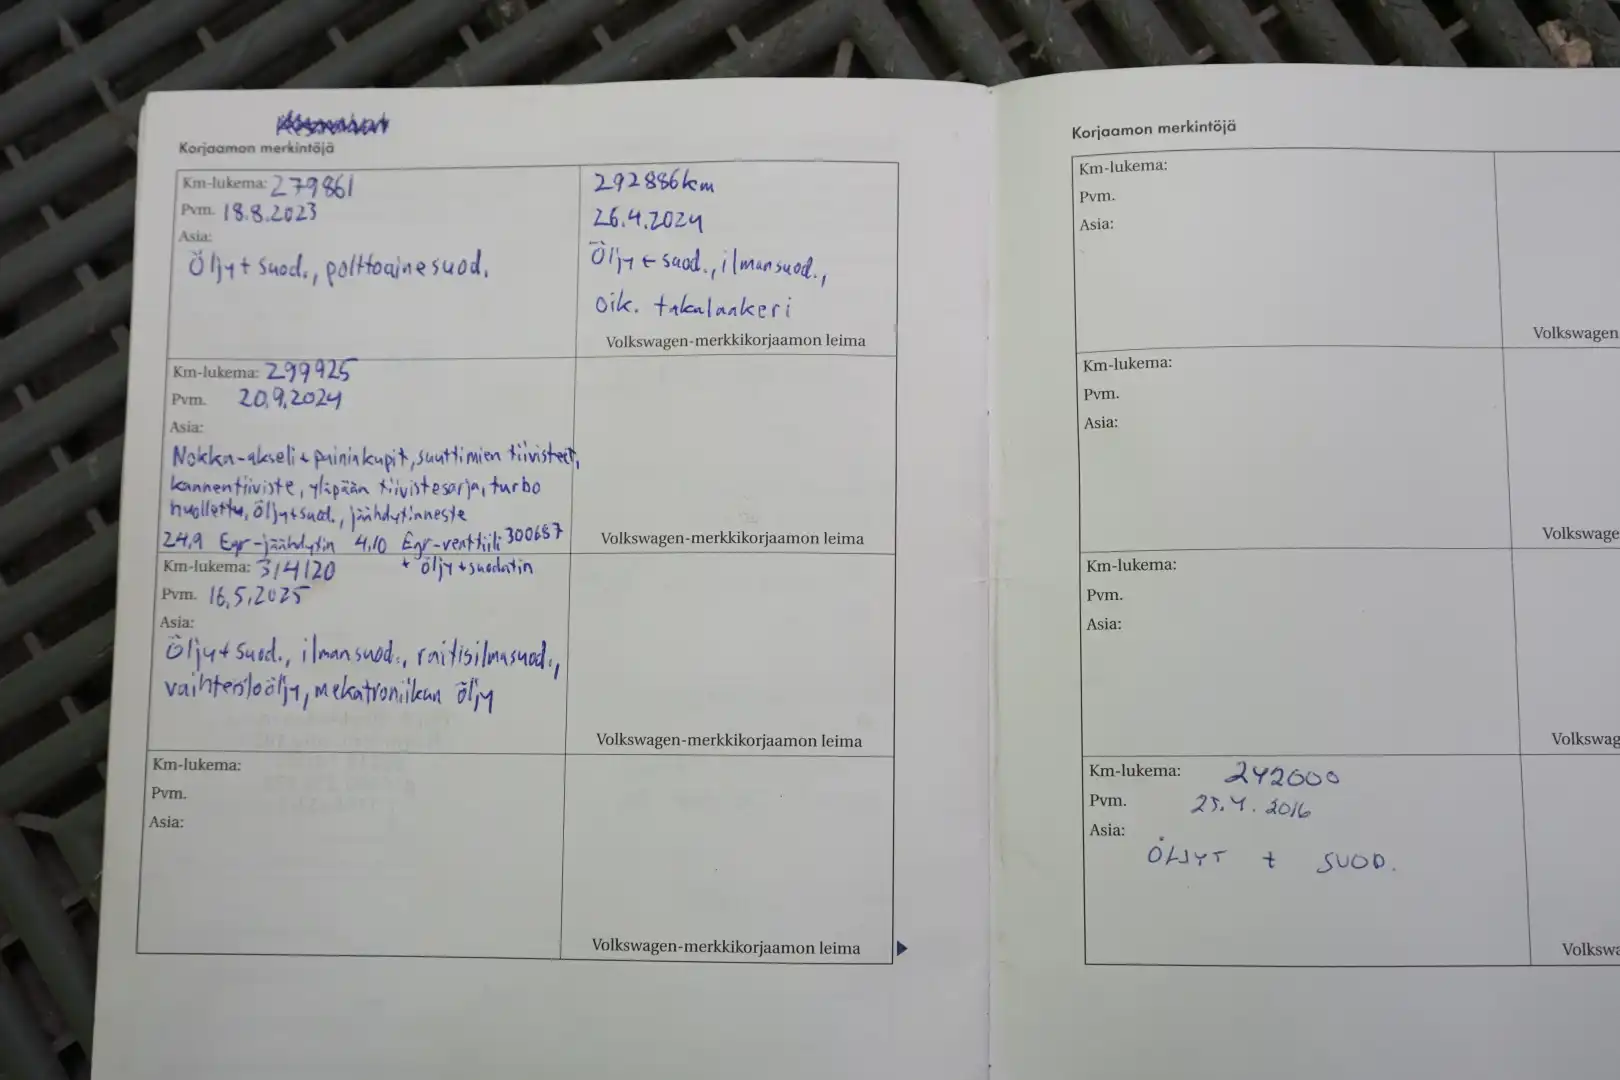 Korjaamon merkintöjä
Km-lukema: 279861
Pvm. 18.8.2023
Asia:
Öljy+suod., polttoainesuod.
292886km
26.4.2024
Öljy+suod., ilmansuod.,
oik. takalaakeri
Volkswagen-merkkikorjaamon leima
Km-lukema: 299925
Pvm. 20.9.2024
Asia:
Nokka-akseli+paininkupit, suuttimien tiivisteet,
kannentiiviste, yläpään tiivistesarja, turbo
huollettu, öljy+suod., jäähdytinneste
24.9 Egr-jäähdytin 4.10 Egr-venttiili 300687
+ öljy+suodatin
Volkswagen-merkkikorjaamon leima
Km-lukema: 314120
Pvm. 16.5.2025
Asia:
Öljy+suod., ilmansuod., raitisilmasuod.,
vaihteistoöljy, mekatroniikan öljy
Volkswagen-merkkikorjaamon leima
Km-lukema:
Pvm.
Asia:
Volkswagen-merkkikorjaamon leima
Korjaamon merkintöjä
Km-lukema:
Pvm.
Asia:
Volkswagen
Km-lukema:
Pvm.
Asia:
Volkswage
Km-lukema:
Pvm.
Asia:
Volkswag
Km-lukema: 242000
Pvm. 25.4.2016
Asia:
ÖLJYT + SUOD.
Volkswa